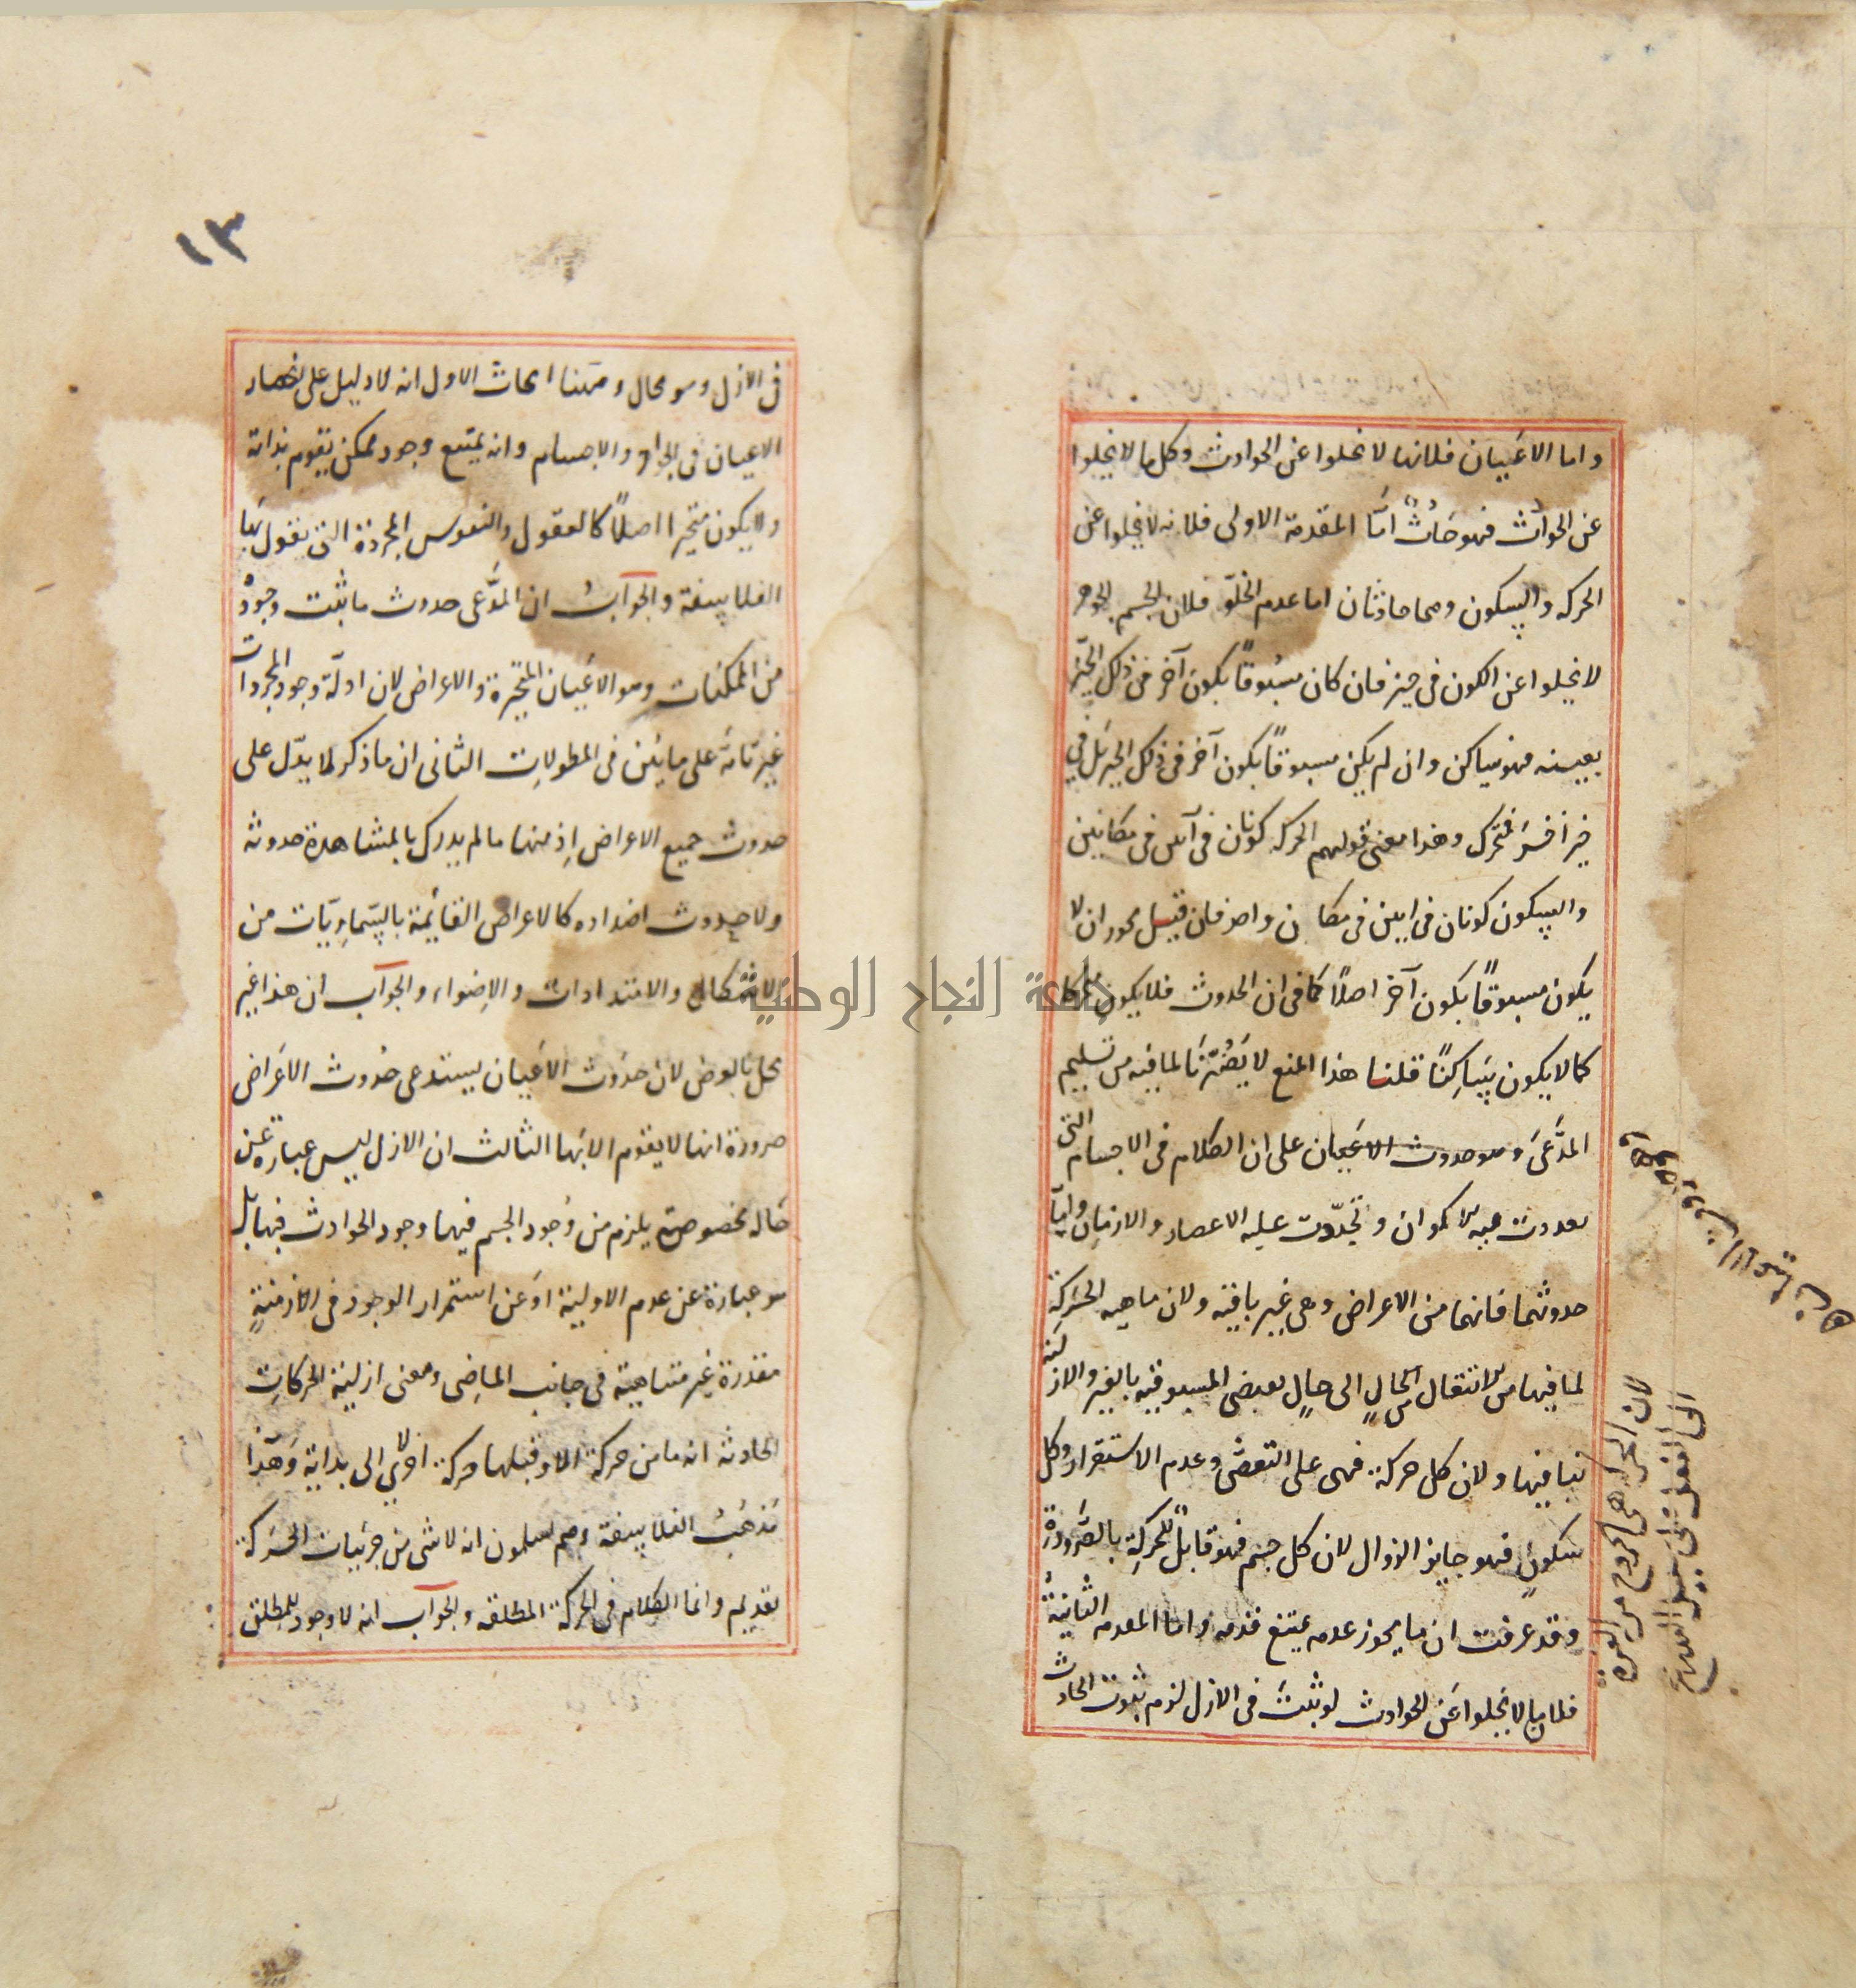 واما الاعيان فلانها لا تخلوا عن الحوادث وكل ما لا يخلوا
عن الحوادث فهو حادث امّا المقدمة الاولى فلانه لا يخلوا عن
الحركه والسكون وهما حادثان اما عدم الخلوّ فلان الجسم الجوهر
لا يخلوا عن الكون فى حيز فان كان مسبوقاً بكون آخر فى ذلك الحيّز
بعينه فهو ساكن وان لم يكن مسبوقاً بكون آخر فى ذلك الحيز بل فى
حيز آخر فمتحرك وهذا معنى قولهم الحركه كونان فى آنين فى مكانين
والسكون كونان فى انين فى مكان واحد فان قيل يجوز ان لا
يكون مسبوقاً بكون آخر اصلاً كما فى ان الحدوث فلا يكون متحركا
كما لا يكون ساكِنًا قلنا هذا المنع لا يَضُرّنَا لما فيه من تسليم
المدَّعَى وهو حدوث الاعيان على ان الكلام فى الاجسام التى
تعددت فيه الاكوان وتجدّدت عليه الاعصار والازمان وامّا
حدوثهما فانهما من الاعراض وهى غير باقيه ولان ماهيه الحركة
لما فيها من الانتقال من الحالٍ الى حالٍ تقتضى المسبوقيه بالغير والازليّة
تنافيها ولان كل حركة فهى على التقضّى وعدم الاستقرار وكل
سكونٍ فهو جايز الزوال لان كل جسم فهو قابلٌ للحركةِ بالضرورة
وقد عرفت ان ما يجوز عدمه يمتنع قدمه واما المقدمه الثانيةُ
فلان ما لا يخلوا عَن الحوادث لو ثبتَ فى الازل لزم ثبوت الحادث
لان الحركة هى الخروج من القوة
الى الفعل على سبيل التدريج
١٣
فى الازل وهو محال وههنا ابحاث الاول انه لا دليل على انحصار
الاعيان فى الجواهر والاجسام وانه يمتنع وجود ممكن يقوم بذاته
ولا يكون متحيزا اصلاً كالعقول والنفوس المجردة التى يقول بها
الفلاسفة والجوابُ ان المدَّعى حدوث ما ثبت وجودُه
من الممكنات وهو الاعيان المتحيّزة والاعراض لان ادلّة وجود المجردات
غير تامّة على ما بيّن فى المطولاتِ الثانى ان ما ذكر لا يدّل على
حدوث جميع الاعراض اِذ منها ما لم يدرك بالمشاهدة حدوثه
ولا حدوث اضداده كالاعراض القائمة بالسّماوِيّات من
الاشكال والامتدادات والاِضواء والجوآب ان هذا غير
مخلٍّ بالغرض لان حدوث الاعيان يستدعى حُدوث الاعراض
ضرورة انها لا يقوم الابها الثالث ان الازل ليس عبارة عن
حَاله مخصوصة يلزم من وُجود الجسم فيها وجود الحوادث فيها بل
هو عبارة عن عدم الاولية اوعَن استمرار الوجود فى الازمنةٍ
مقدرة غير متناهية فى جانب الماضِى ومعنى ازلية الحركاتِ
الحادثه انه ما من حركة الا وقبلها حركة اخرى لا الى بداية وَهَذا
مَذهَبُ الفلاسفة وهم يسلمون انه لا شى من جزئيات الحَركة
بقديم وانما الكلام فى الحركة المطلقه والجوآب انه لا وجود للمطلق
جامعة النجاح الوطنية